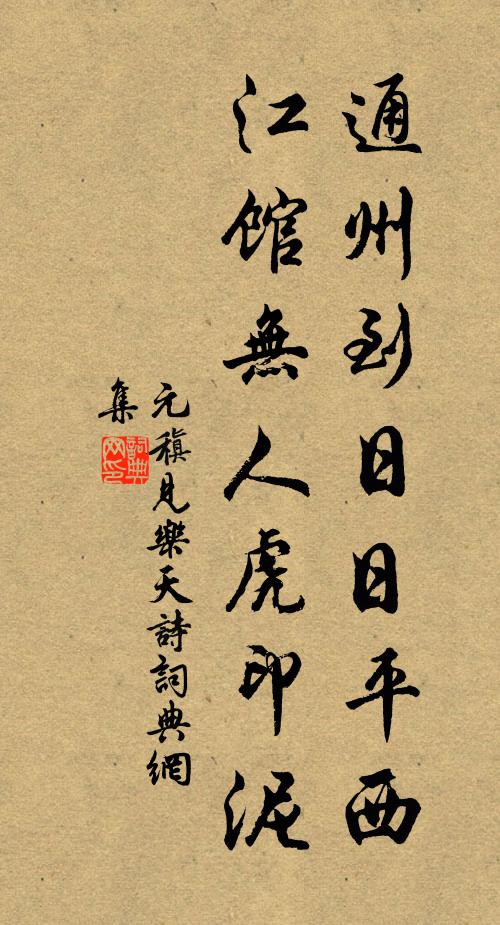 通州到日日平西
江館無人虎印泥
元稹見樂天詩詞典網
集
詞典網印